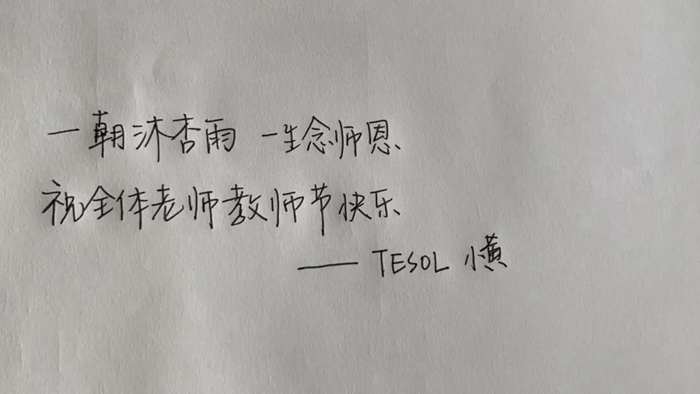 一朝沐杏雨 一生念师恩
祝全体老师教师节快乐
—— TESOL 小黄